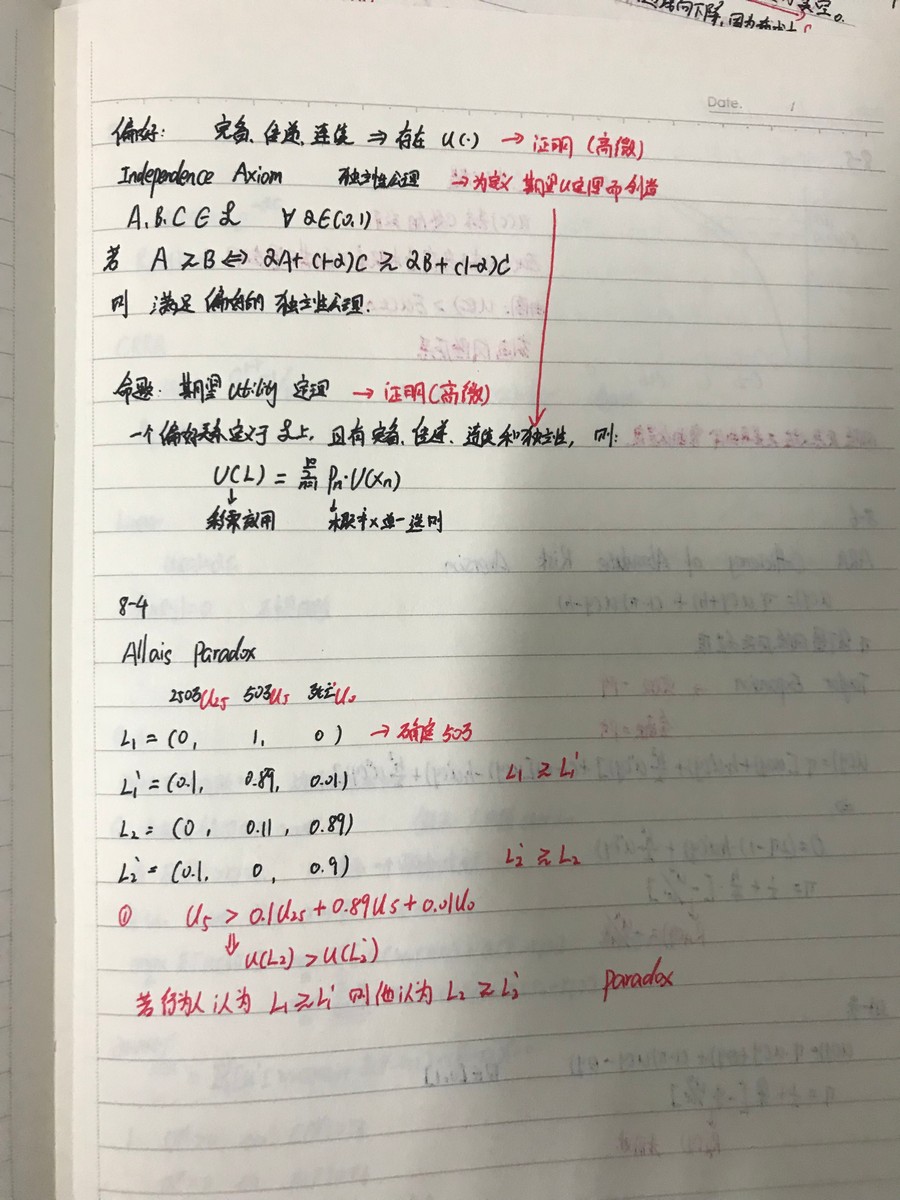 向下降,因为
Date. 1
偏好: 完备、传递、连续 ⇒ 存在 U(·) → 证明 (高微)
Independence Axiom 独立性公理 → 为定义 期望U定理而创造
A, B, C ∈ ℒ ∀ α∈(0,1)
若 A ≿ B ⇔ αA + (1-α)C ≿ αB + (1-α)C
则 满足 偏好的 独立性公理.
命题: 期望 Utility 定理 → 证明(高微)
一个偏好关系定义于 ℒ 上, 且有完备、传递、连续和独立性, 则:
U(L) = Σ Pn·U(Xn)
↓ ↓
彩票效用 概率×单一
8-4
Allais Paradox
250万U25 50万U5 U0
L1 = (0, 1, 0) → 确定 50万
L1' = (0.1, 0.89, 0.01) L1 ≿ L1'
L2 = (0, 0.11, 0.89)
L2' = (0.1, 0, 0.9) L2' ≿ L2
① U5 > 0.1U25 + 0.89U5 + 0.01U0
⇓ U(L2) > U(L2')
若行为人认为 L1 ≿ L1' 则他认为 L2 ≿ L2' Paradox